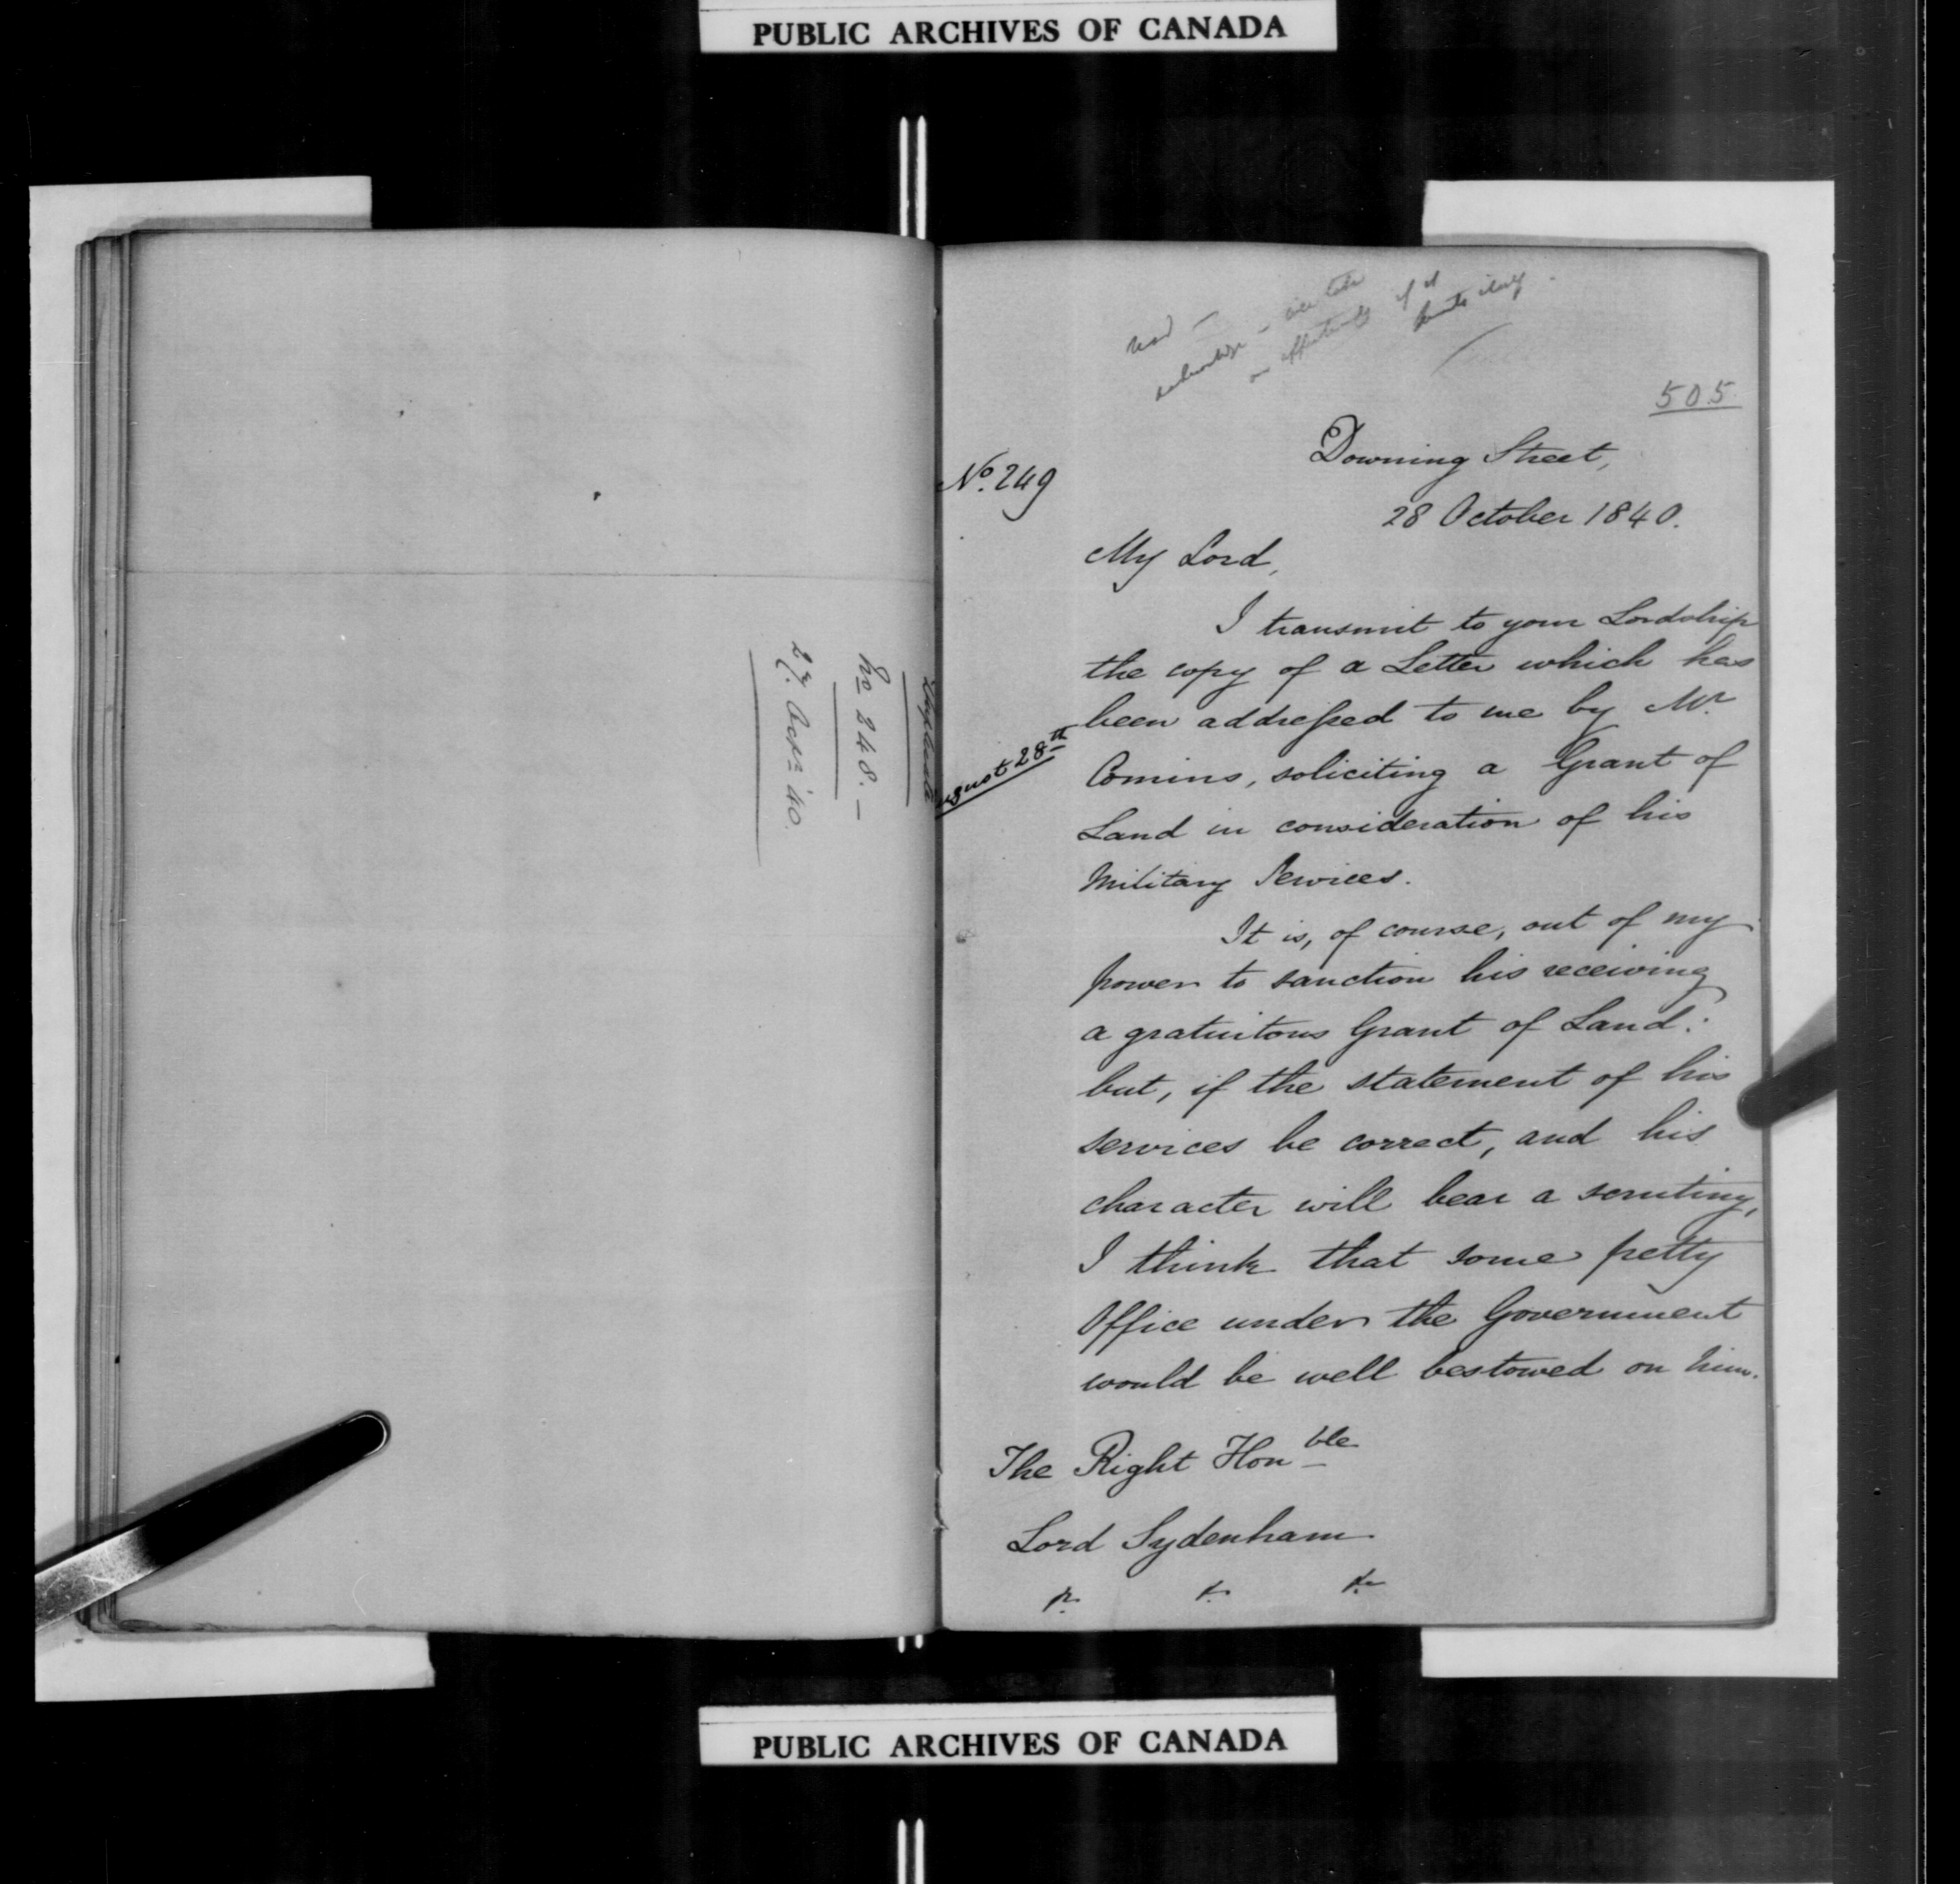 PUBLIC ARCHIVES OF CANADA
Duplicate
No 248.—
27. Octr. '40.
505
No. 249
Downing Street,
28 October 1840.
My Lord,
I transmit to your Lordship
the copy of a Letter which has
been addressed to me by Mr.
ugust 28th
Comins, soliciting a Grant of
Land in consideration of his
Military Services.
It is, of course, out of my
power to sanction his receiving
a gratuitous Grant of Land:
but, if the statement of his
services be correct, and his
character will bear a scrutiny,
I think that some petty
Office under the Government
would be well bestowed on him.
The Right Honble
Lord Sydenham
PUBLIC ARCHIVES OF CANADA